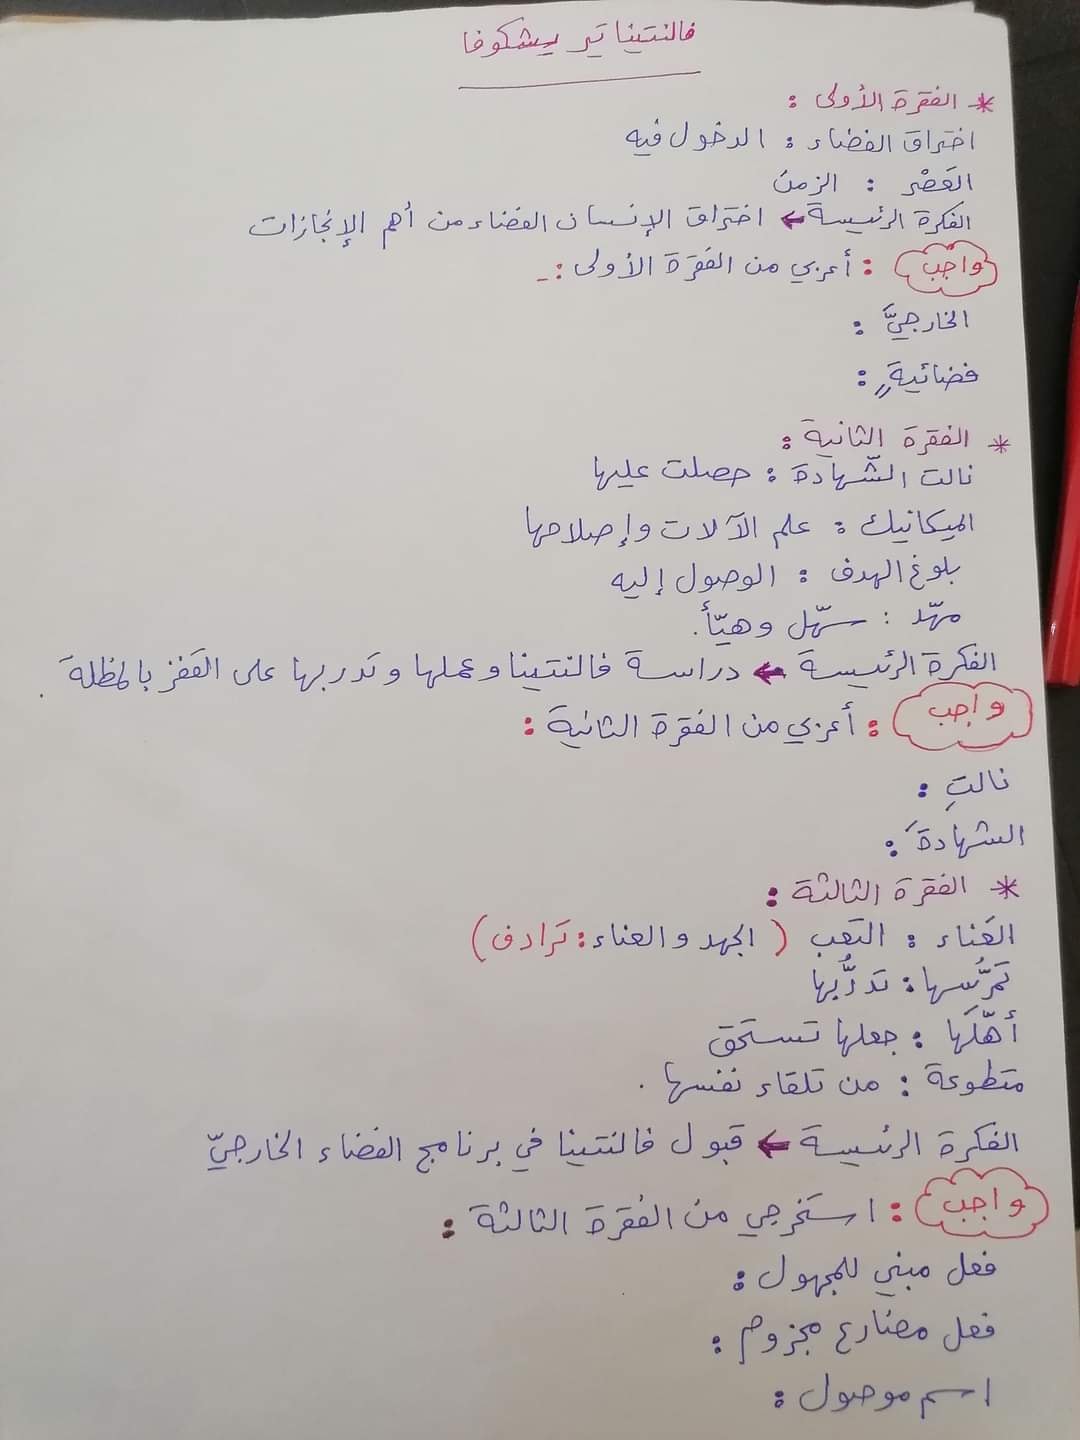 فالنتينا تيريشكوفا
* الفقرة الأولى :
اختراق الفضاء : الدخول فيه
العَصْر : الزمن
الفكرة الرئيسة ← اختراق الإنسان الفضاء من أهم الإنجازات
واجب : أعربي من الفقرة الأولى :-
الخارجيَّ :
فضائيةٍ :
* الفقرة الثانية :
نالت الشّهادة : حصلت عليها
الميكانيك : علم الآلات وإصلاحها
بلوغ الهدف : الوصول إليه
مهّد : سهّل وهيّأ.
الفكرة الرئيسة ← دراسة فالنتينا وعملها وتدربها على القفز بالمظلة .
واجب : أعربي من الفقرة الثانية :
نالتِ :
الشهادةَ :
* الفقرة الثالثة :
العَناء : التعب ( الجهد والعناء : ترادف )
تمرُّسها : تدرُّبها
أهّلَها : جعلها تستحق
متطوعة : من تلقاء نفسها .
الفكرة الرئيسة ← قبول فالنتينا في برنامج الفضاء الخارجيّ
واجب : استخرجي من الفقرة الثالثة :
فعل مبني للمجهول :
فعل مضارع مجزوم :
اسم موصول :